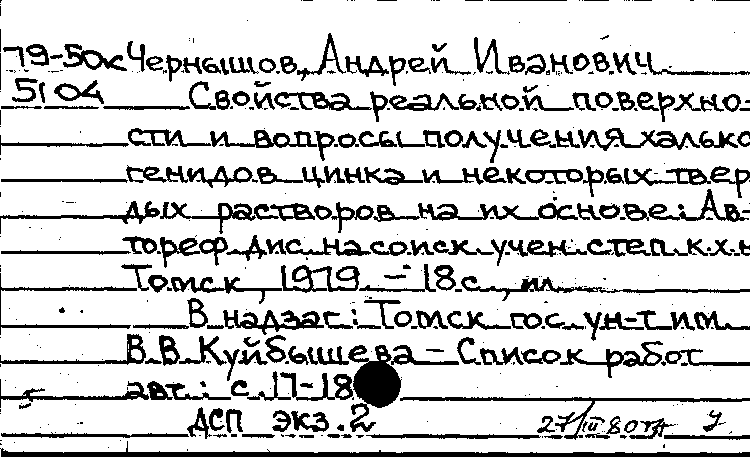 79-50к Чернышов, Андрей Иванович
5104 Свойства реальной поверхно-
сти и вопросы получения халько
генидов цинка и некоторых твер
дых растворов на их основе: Ав-
тореф дис. на соиск. учен. степ. к.х.н
Томск, 1979. – 18 с., ил.
В надзаг: Томск гос. ун-т им.
В.В. Куйбышева – Список работ
авт.: с. 17-18
ДСП экз. 2
27/III 80